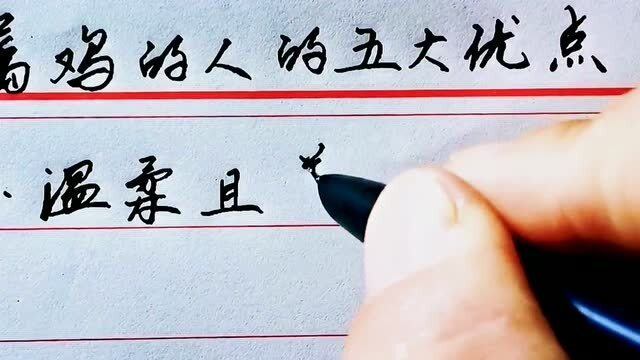 属鸡的人的五大优点
温柔且